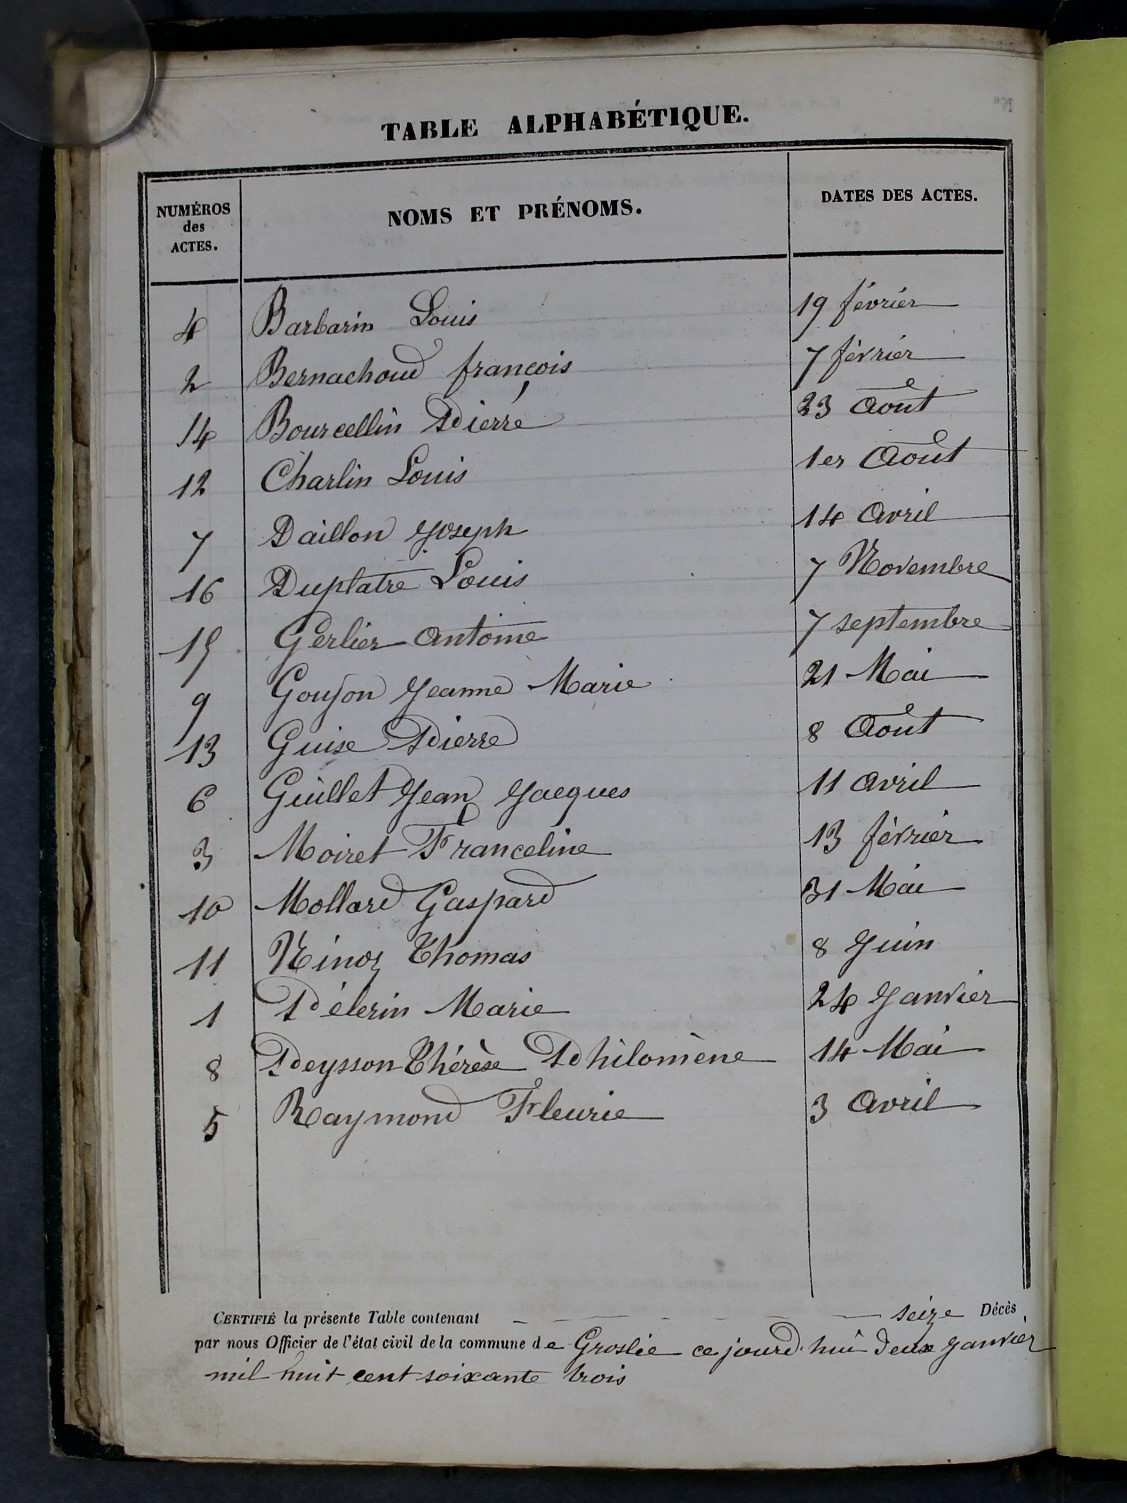 TABLE ALPHABÉTIQUE.
NUMÉROS des ACTES. NOMS ET PRÉNOMS. DATES DES ACTES.
4 Barbarin Louis 19 février
2 Bernachoud françois 7 février
14 Bourcellin Pierre 23 Août
12 Charlin Louis 1er Août
7 Daillon Joseph 14 Avril
16 Duplatre Louis 7 Novembre
15 Gerlier Antoine 7 septembre
9 Goujon Jeanne Marie 21 Mai
13 Guise Pierre 8 Août
6 Guillet Jean Jacques 11 avril
3 Moiret Franceline 13 février
10 Mollard Gaspard 31 Mai
11 Ninoz Thomas 8 Juin
1 Pélerin Marie 24 Janvier
8 Peysson Thérèse Philomène 14 Mai
5 Raymond Fleurie 3 Avril
CERTIFIÉ la présente Table contenant seize Décès
par nous Officier de l'état civil de la commune de Groslée ce jourd'hui deux Janvier
mil huit cent soixante trois